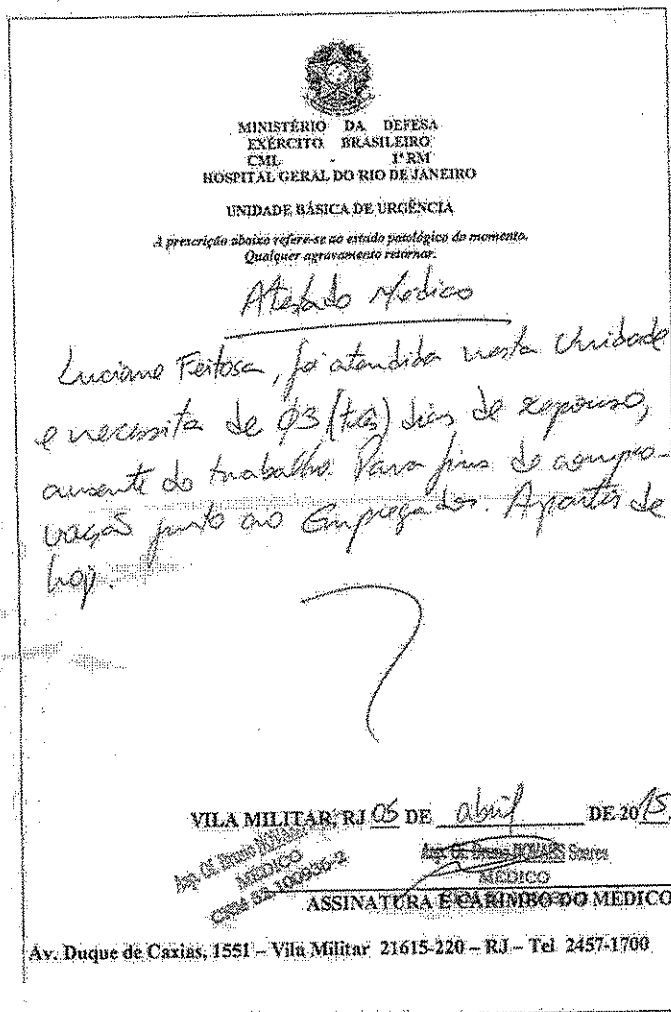 MINISTÉRIO DA DEFESA
EXÉRCITO BRASILEIRO
CML - 1ª RM
HOSPITAL GERAL DO RIO DE JANEIRO
UNIDADE BÁSICA DE URGÊNCIA
A prescrição abaixo refere-se ao estado patológico do momento.
Qualquer agravamento retornar.
Atestado Médico
Luciane Feitosa, foi atendida nesta Unidade
e necessita de 03 (três) dias de repouso,
ausente do trabalho. Para fins de compro-
vação junto ao Empregador. A partir de
hoje.
VILA MILITAR, RJ 05 DE abril DE 2015.
Asp. Of. Bruno
MÉDICO
CRM 52.100936-2
Asp. Of. Bruno Soares
MÉDICO
ASSINATURA E CARIMBO DO MÉDICO
Av. Duque de Caxias, 1551 – Vila Militar 21615-220 – RJ – Tel 2457-1700